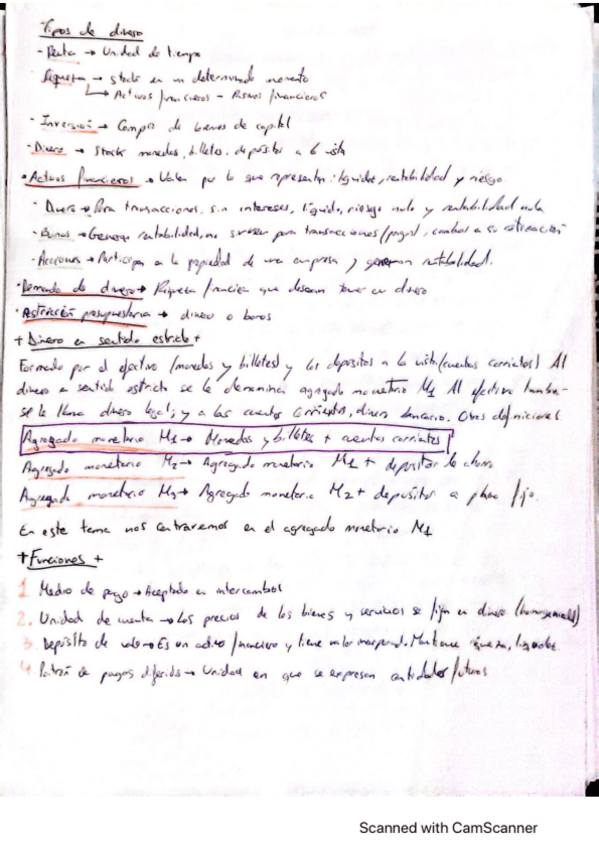 Tipos de dinero
- Renta → Unidad de tiempo
Riqueza → stock en un determinado momento
↳ Activos financieros - Pasivos financieros
- Inversión → Compra de bienes de capital
- Dinero → Stock monedas, billetes, depósitos a la vista
• Activos financieros → Valen por lo que representan: liquidez, rentabilidad y riesgo.
- Dinero → Para transacciones, sin intereses, líquido, riesgo nulo y rentabilidad nula
- Bonos → Generan rentabilidad, no sirven para transacciones (pagos), cambios a su cotización
- Acciones → Participan a la propiedad de una empresa y generan rentabilidad.
• Demanda de dinero → Riqueza financiera que desean tener en dinero
• Restricción presupuestaria → dinero o bonos
+ Dinero en sentido estricto +
Formado por el efectivo (monedas y billetes) y los depósitos a la vista (cuentas corrientes) Al
dinero en sentido estricto se le denomina agregado monetario M1 Al efectivo también
se le llama dinero legal; y a las cuentas corrientes, dinero bancario. Otras definiciones
Agregado monetario M1 → Monedas y billetes + cuentas corrientes
Agregado monetario M2 → Agregado monetario M1 + depósitos de ahorro
Agregado monetario M3 → Agregado monetario M2 + depósitos a plazo fijo.
En este tema nos centraremos en el agregado monetario M1
+ Funciones +
1. Medio de pago → Aceptado en intercambios
2. Unidad de cuenta → Los precios de los bienes y servicios se fijan en dinero
3. Depósito de valor → Es un activo financiero y tiene valor Mantiene riqueza,
4. Patrón de pagos diferidos → Unidad en que se expresan cantidades futuras
Scanned with CamScanner